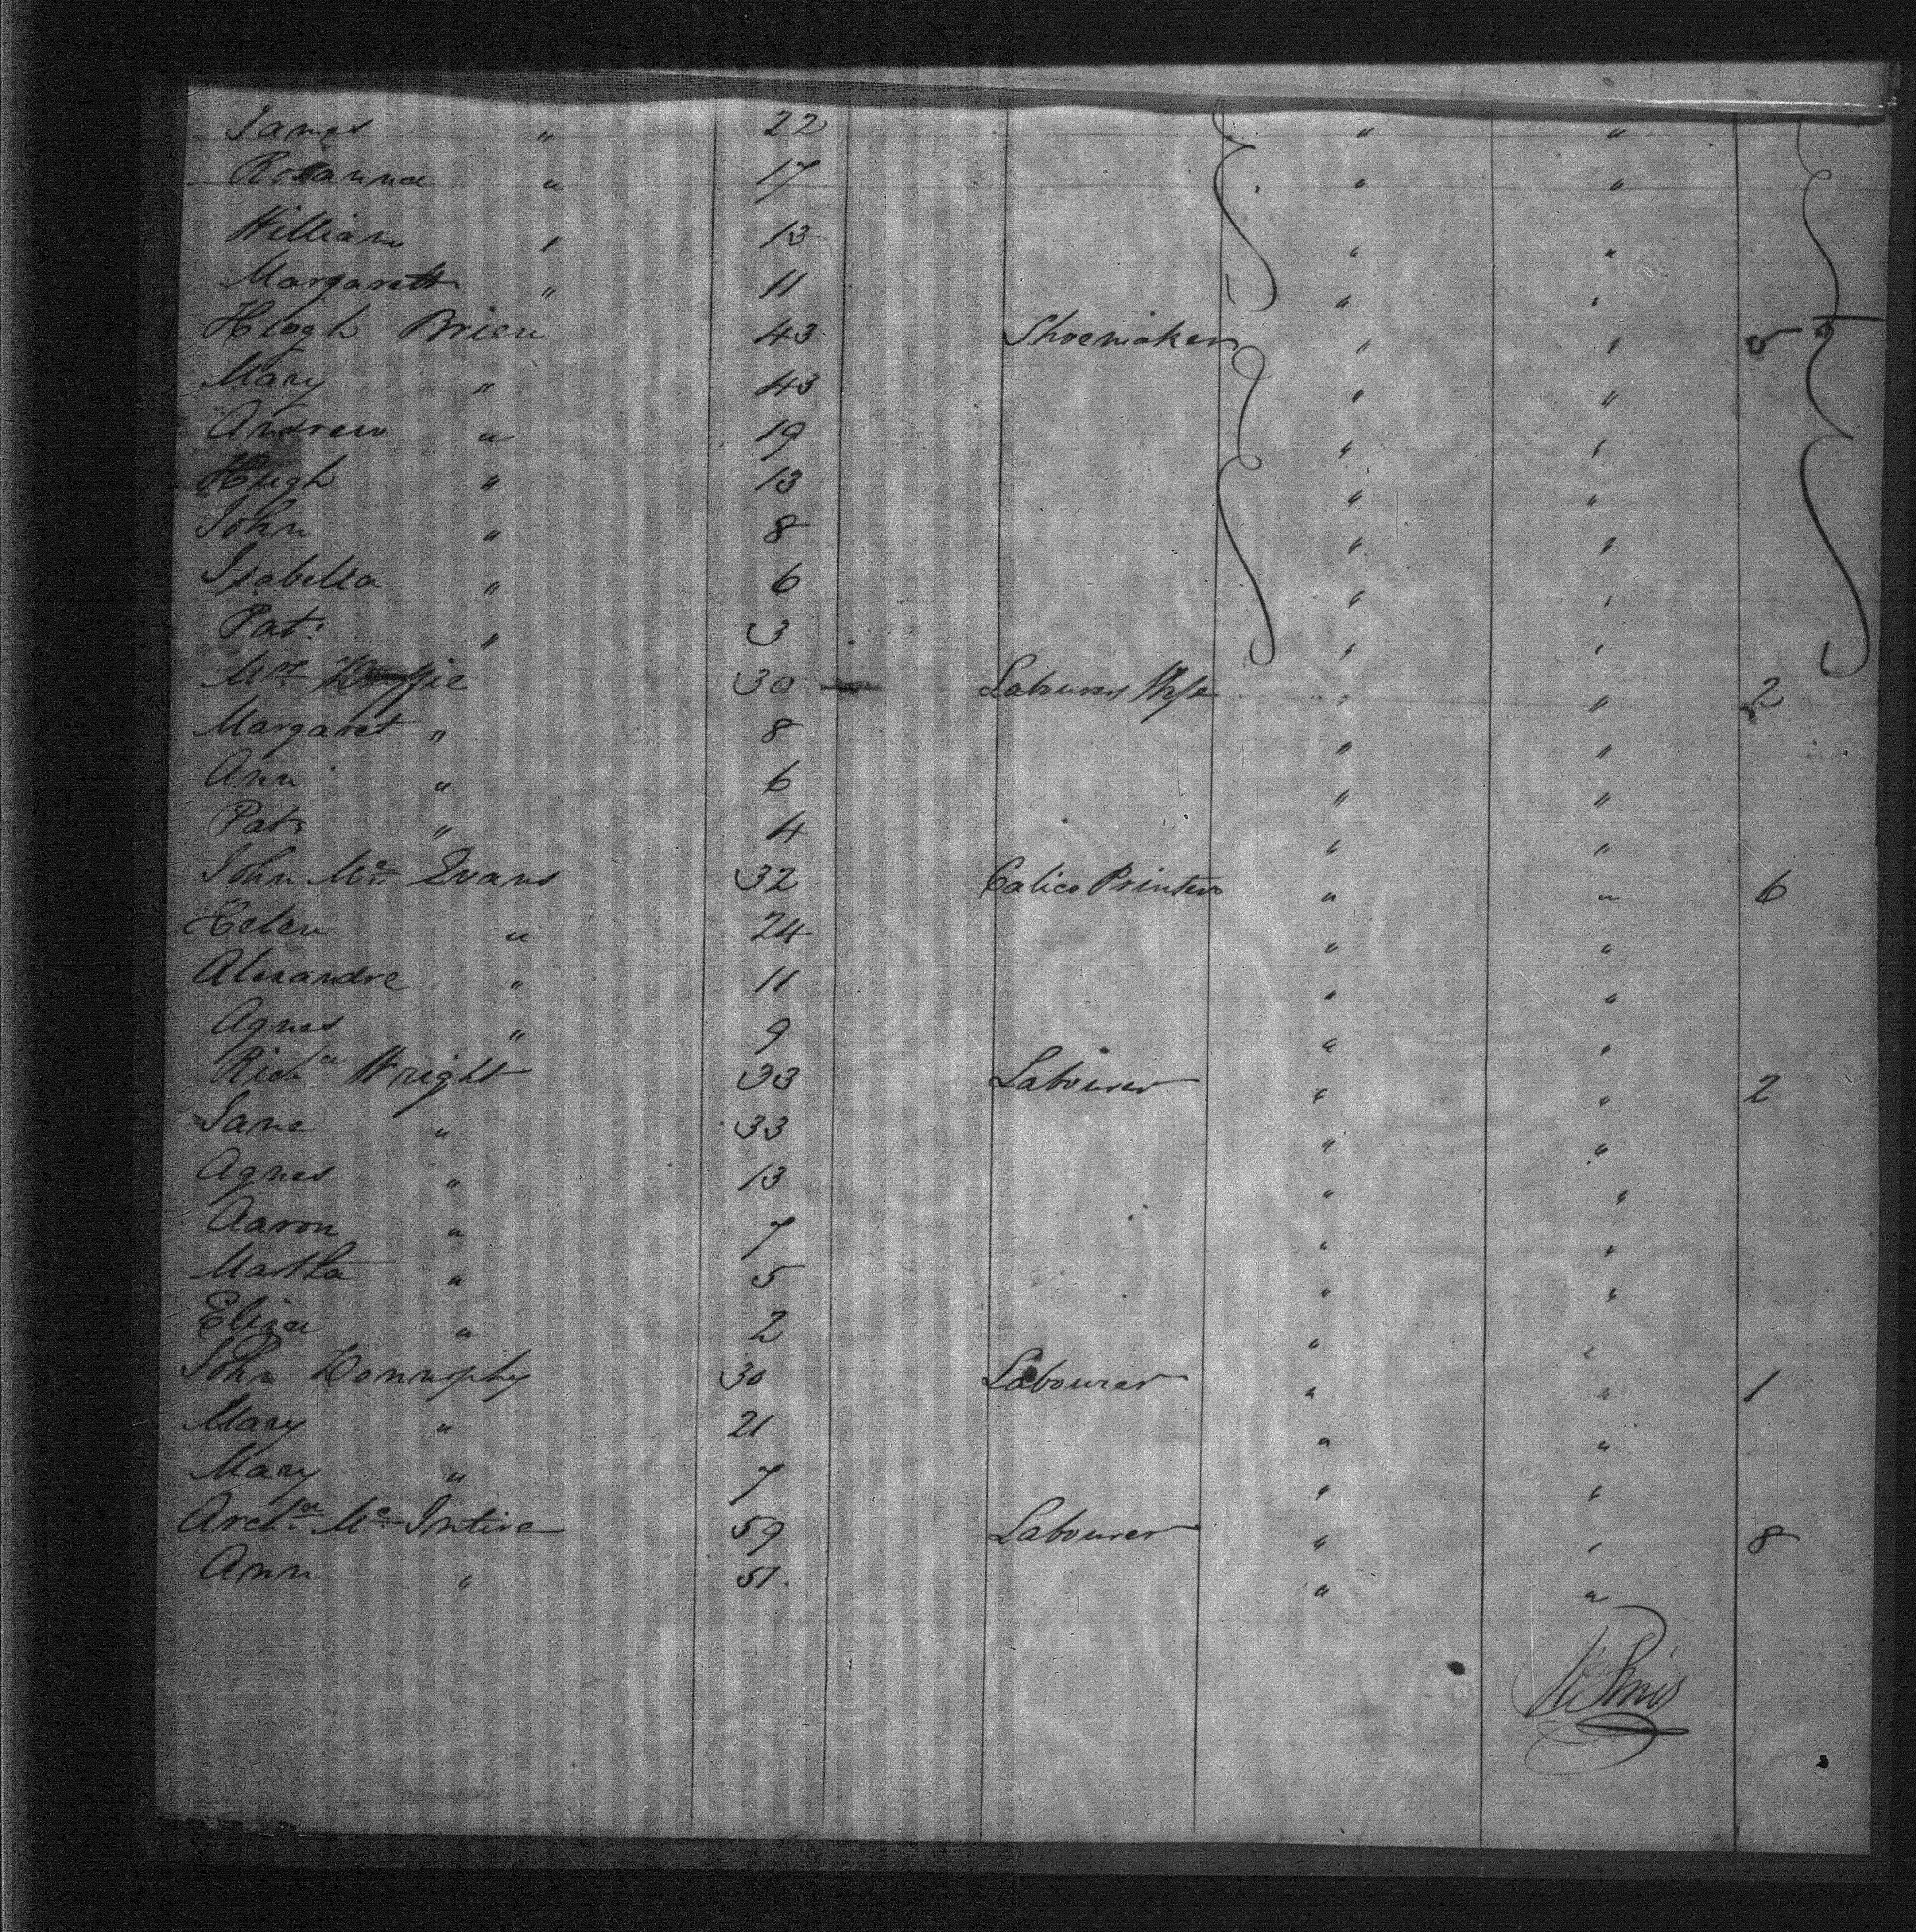 James " 22 " "
Rosanna " 17 " "
William " 13 " "
Margarett " 11 " "
Hugh Brien 43 Shoemaker " " 5
Mary " 43 " "
Andrew " 19 " "
Hugh " 13 " "
John " 8 " "
Isabella " 6 " "
Pat: " 3 " "
Mrs 30 Labourers Wife " " 2
Margaret " 8 " "
Ann " 6 " "
Pat: " 4 " "
John Mc Evans 32 Calico Printer " " 6
Helen " 24 " "
Alexandre " 11 " "
Agnes " 9 " "
Richd Wright 33 Labourer " " 2
Jane " 33 " "
Agnes " 13 " "
Aaron " 7 " "
Martha " 5 " "
Eliza " 2 " "
John 30 Labourer " " 1
Mary " 21 " "
Mary " 7 " "
Archd Mc Intire 59 Labourer " " 8
Ann " 51. " "